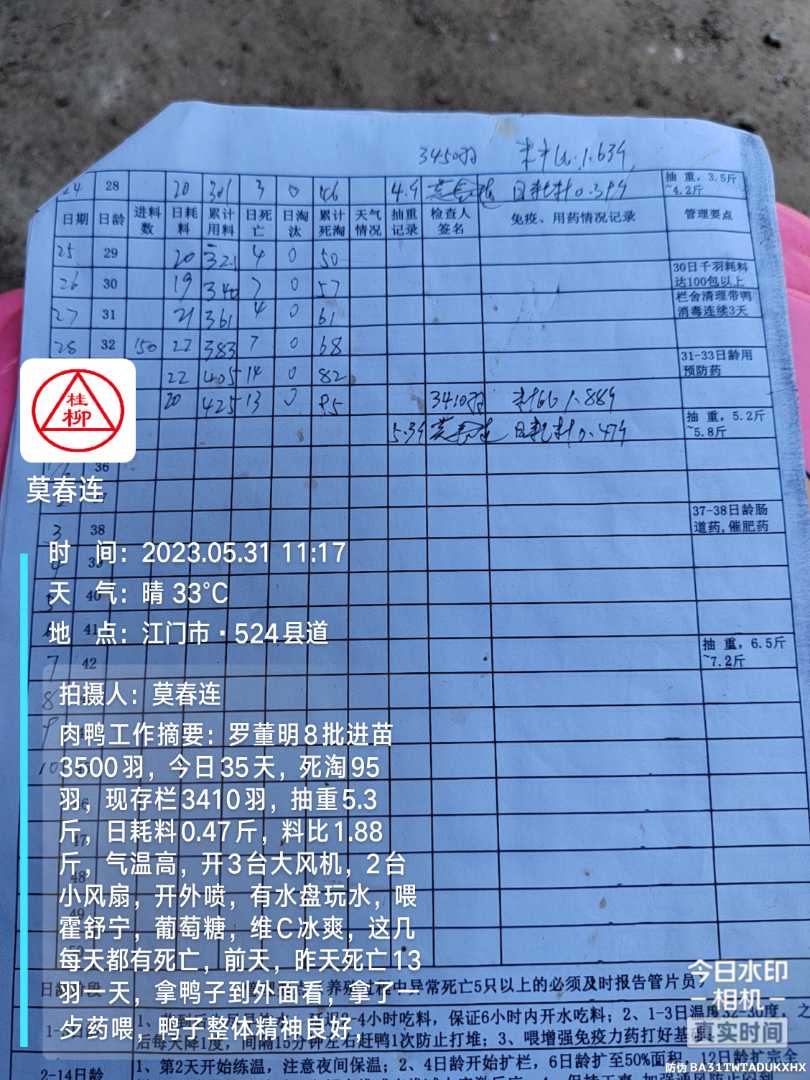 3450羽 料比1.63斤
24 28 20 301 3 0 46 4.9 莫春连 日耗料0.39斤 抽重，3.5斤
~4.2斤
日期 日龄 进料数 日耗料 累计用料 日死亡 日淘汰 累计死淘 天气情况 抽重记录 检查人签名 免疫、用药情况记录 管理要点
25 29 20 321 4 0 50
26 30 19 340 7 0 57 30日千羽耗料
达100包以上
27 31 21 361 4 0 61 栏舍清理带鸭
消毒连续3天
28 32 150 22 383 7 0 68 31-33日龄用
预防药
22 405 14 0 82
20 425 13 0 95 3410羽 料比1.88斤
5.3斤 莫春连 日耗料0.47斤 抽重，5.2斤
~5.8斤
36
桂
柳
莫春连
3 38 37-38日龄肠
道药,催肥药
时间：2023.05.31 11:17
天气：晴 33℃
40
地点：江门市·524县道
41
7 42 抽重，6.5斤
~7.2斤
8
拍摄人：莫春连
肉鸭工作摘要：罗董明8批进苗
3500羽，今日35天，死淘95
羽，现存栏3410羽，抽重5.3
斤，日耗料0.47斤，料比1.88
斤，气温高，开3台大风机，2台
小风扇，开外喷，有水盘玩水，喂
霍舒宁，葡萄糖，维C冰爽，这几
每天都有死亡，前天，昨天死亡13
羽一天，拿鸭子到外面看，拿了一
歺药喂，鸭子整体精神良好，
10
48
49
今日水印
相机
真实时间
养殖过程中异常死亡5只以上的必须及时报告管片员？
-4小时吃料，保证6小时内开水吃料；2、1-3日温度32-30度，之
后每天降1度，间隔15分钟左右赶鸭1次防止打堆；3、喂增强免疫力药打好基
2-14日龄 1、第2天开始练温，注意夜间保温；2、4日龄开始扩栏，6日龄扩至50%面积，12日龄扩完全
防伪 BA31TWTADUKXHX